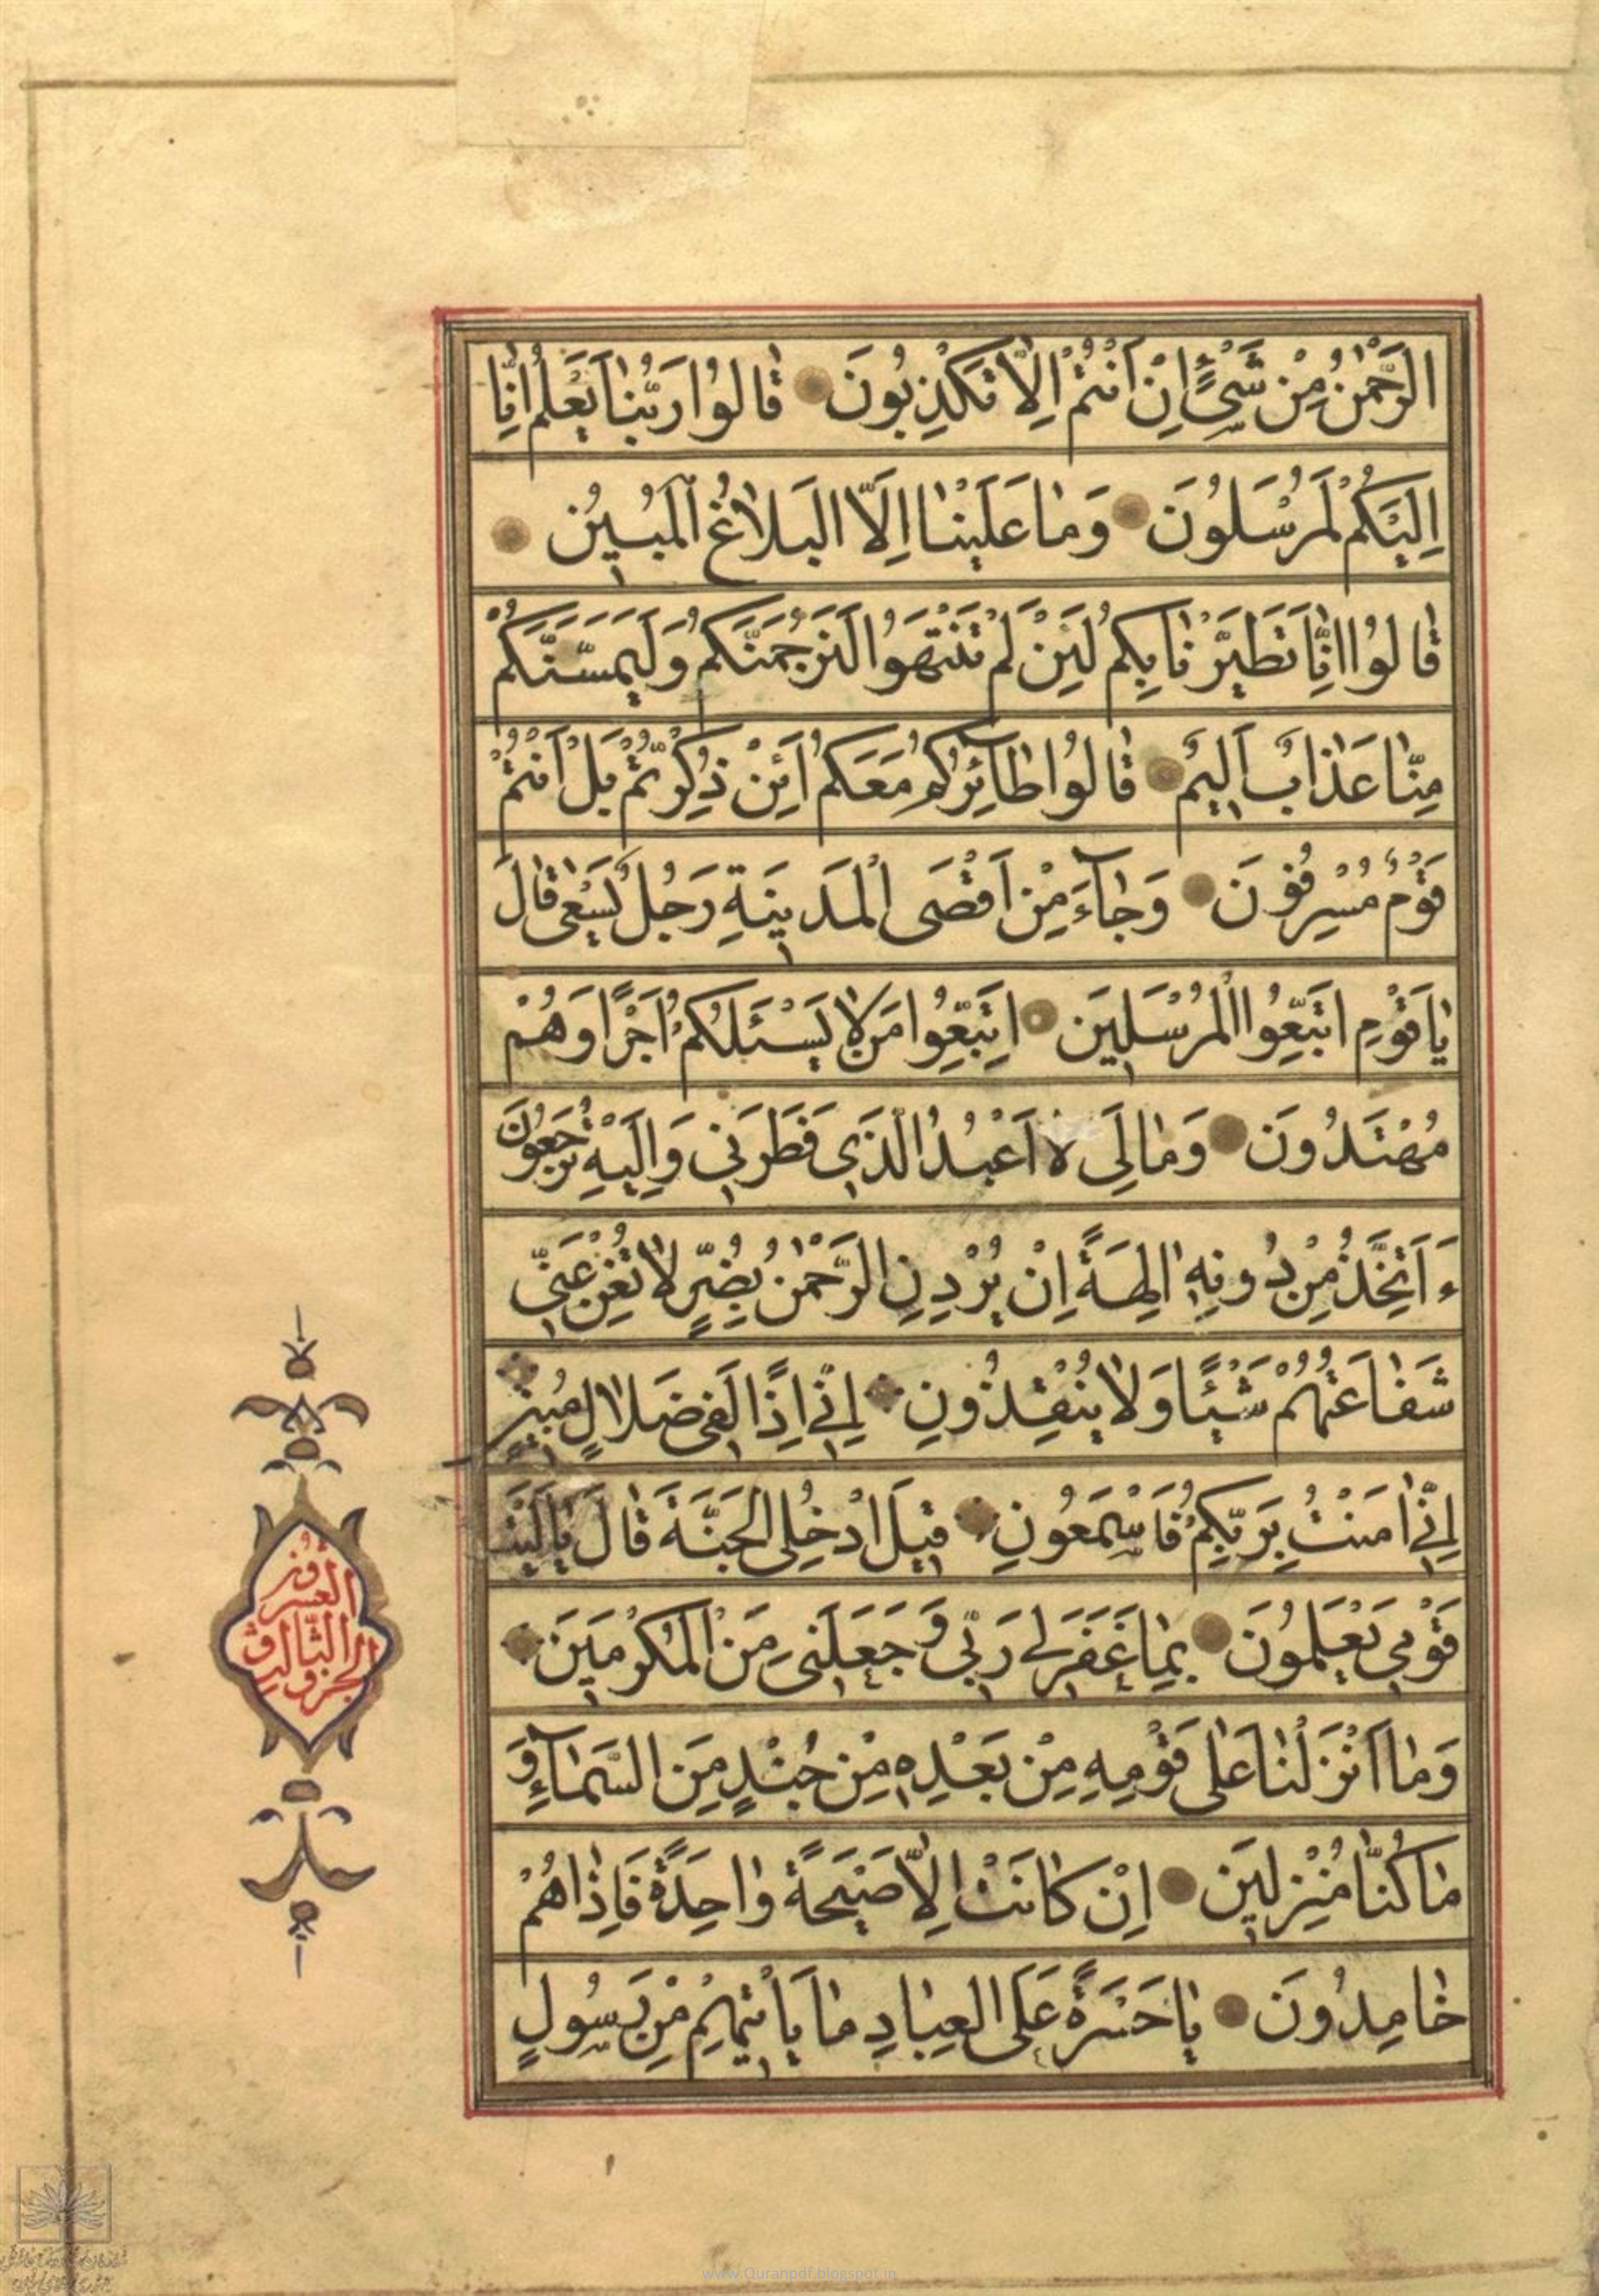 الرَّحْمٰنُ مِنْ شَیْءٍ اِنْ اَنْتُمْ اِلَّا تَكْذِبُونَ قٰالُوا رَبُّنٰا يَعْلَمُ اِنّٰا
اِلَيْكُمْ لَمُرْسَلُونَ وَمٰا عَلَيْنٰا اِلَّا الْبَلٰاغُ الْمُبِينُ
قٰالُوا اِنّٰا تَطَيَّرْنٰا بِكُمْ لَئِنْ لَمْ تَنْتَهُوا لَنَرْجُمَنَّكُمْ وَلَيَمَسَّنَّكُمْ
مِنّٰا عَذٰابٌ اَلِيمٌ قٰالُوا طٰآئِرُكُمْ مَعَكُمْ اَئِنْ ذُكِّرْتُمْ بَلْ اَنْتُمْ
قَوْمٌ مُسْرِفُونَ وَجٰآءَ مِنْ اَقْصَى الْمَدِينَةِ رَجُلٌ يَسْعٰى قٰالَ
يٰا قَوْمِ اتَّبِعُوا الْمُرْسَلِينَ اِتَّبِعُوا مَنْ لٰا يَسْئَلُكُمْ اَجْرًا وَهُمْ
مُهْتَدُونَ وَمٰا لِیَ لٰا اَعْبُدُ الَّذِي فَطَرَنِي وَاِلَيْهِ تُرْجَعُونَ
ءَاَتَّخِذُ مِنْ دُونِهِ اٰلِهَةً اِنْ يُرِدْنِ الرَّحْمٰنُ بِضُرٍّ لٰا تُغْنِ عَنِّي
شَفٰاعَتُهُمْ شَيْئًا وَلٰا يُنْقِذُونِ اِنِّي اِذًا لَفِي ضَلٰالٍ مُبِينٍ
اِنِّي اٰمَنْتُ بِرَبِّكُمْ فَاسْمَعُونِ قِيلَ ادْخُلِ الْجَنَّةَ قٰالَ يٰا لَيْتَ
قَوْمِي يَعْلَمُونَ بِمٰا غَفَرَ لِي رَبِّي وَجَعَلَنِي مِنَ الْمُكْرَمِينَ
وَمٰا اَنْزَلْنٰا عَلٰى قَوْمِهِ مِنْ بَعْدِهِ مِنْ جُنْدٍ مِنَ السَّمٰآءِ وَ
مٰا كُنّٰا مُنْزِلِينَ اِنْ كٰانَتْ اِلَّا صَيْحَةً وٰاحِدَةً فَاِذٰا هُمْ
خٰامِدُونَ يٰا حَسْرَةً عَلَى الْعِبٰادِ مٰا يَأْتِيهِمْ مِنْ رَسُولٍ
الجزو
الثالث و
العشرون
www.Quranpdf.blogspot.in